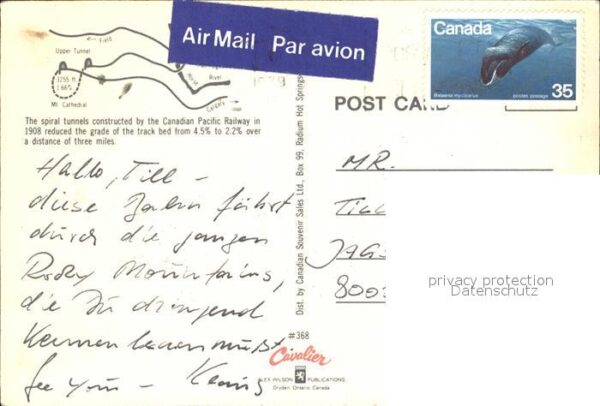 Field
Upper Tunnel
3755 ft
1.66%
River
Mt. Cathedral
Calgary
Air Mail Par avion
Canada
Balaena mysticetus
postes postage
35
The spiral tunnels constructed by the Canadian Pacific Railway in
1908 reduced the grade of the track bed from 4.5% to 2.2% over
a distance of three miles.
POST CARD
Dist. by Canadian Souvenir Sales Ltd., Box 99, Radium Hot Springs
Hallo, Till –
diese Bahn fährt
durch die ganzen
Rocky Mountains,
die Du dringend
kennenlernen mußt.
See you –
MR.
JAGS
800
privacy protection
Datenschutz
#368
Cavalier
ALEX WILSON PUBLICATIONS
Dryden, Ontario, Canada